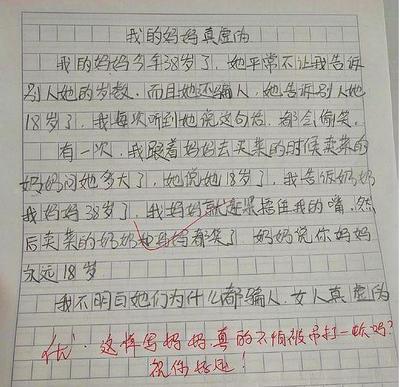 我的妈妈真虚伪
我的妈妈今年38岁了，她平常不让我告诉
别人她的岁数，而且她还骗人，她告诉别人她
18岁了，我每次听到她说这句话，都会偷笑。
有一次，我跟着妈妈去买菜的时候卖菜的
奶奶问她多大了，她说她18岁了，我告诉奶奶
我妈妈38岁了，我妈妈就赶紧捂住我的嘴，然
后卖菜的奶奶和妈妈都笑了 妈妈说你妈妈
永远18岁
我不明白她们为什么都骗人，女人真虚伪
优：这样写妈妈，真的不怕被吊打一顿吗？
祝你好运！